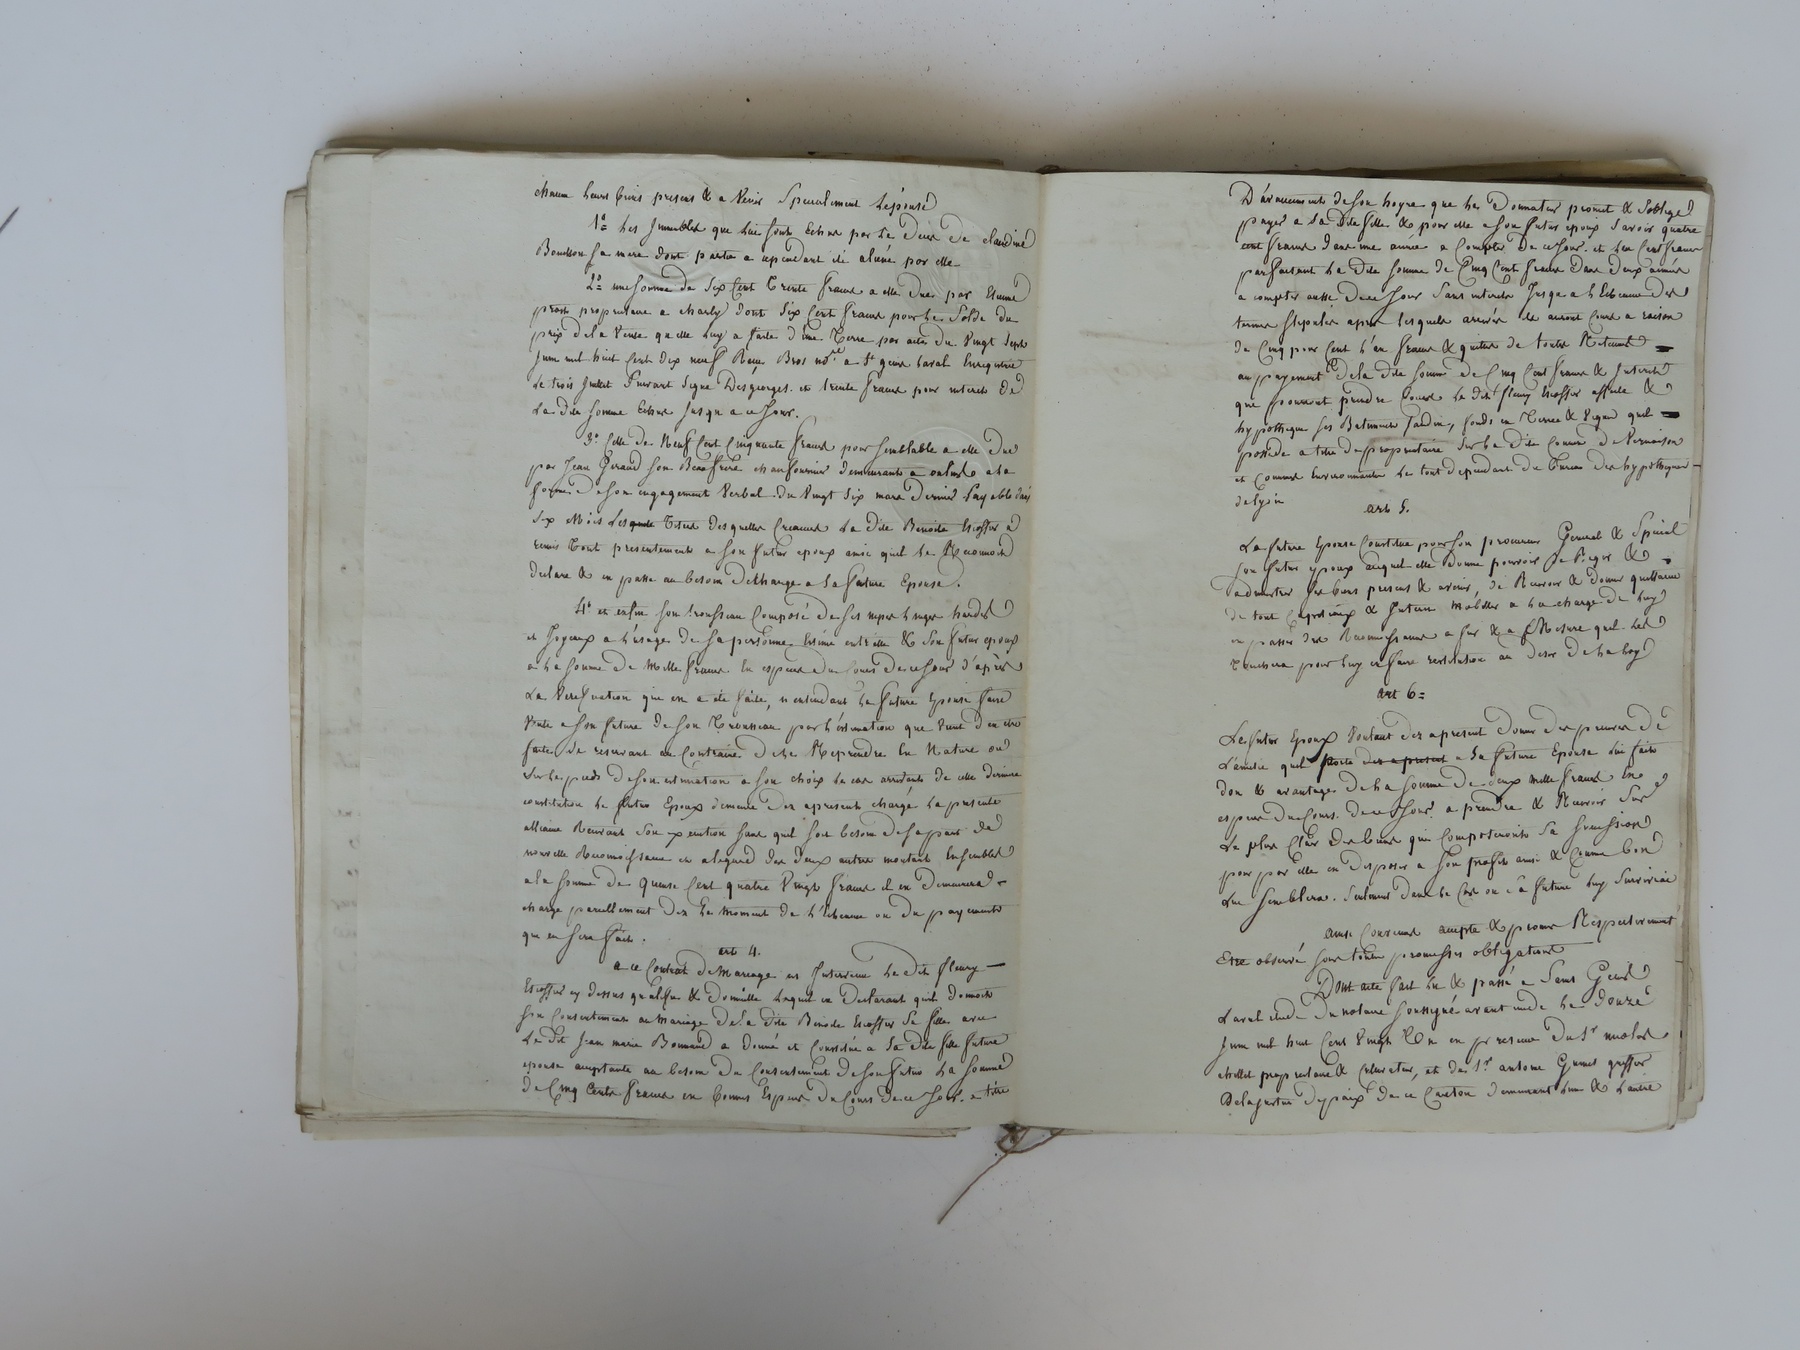 chacun leurs biens present & a venir Specialement L'épouse
1º Les Immeubles que lui sont Echus par Le Deces De claudine
Bouillon sa mere dont partie a cependant été aliéné par elle
2º une somme de Six Cent Trente francs a elle due par Etienne
proprietaire a charly dont Six Cent francs pour le Solde du
prix de la Vente quelle luy a faite d'une Terre par acte du Vingt Sept
Juin mil huit Cent dix neuf Reçu Bros no.re a St genis Laval Enregistré
Le trois Juillet Suivant Signé Desgeorges. et trente francs pour interets De
La dite Somme Echus Jusqu a ce Jour.
3º Celle de Neuf Cent Cinquante francs pour semblable a elle due
par Jean Geraud Son Beaufrere demeurant a oullins a la
forme de Son engagement Verbal du Vingt Six mars Dernier payable dans
Six Mois Desquelles Creances La dite Benoite Escoffier a
remis Tout presentement a Son futur epoux ainsi quil Le Reconnoit
declare & en passe au besoin décharge a Sa future Epouse.
4º et enfin Son trousseau Composé de Ses nipes Linges hardes
et Joyeaux a L'usage de Sa personne Estimé entr'elle & Son futur epoux
a La Somme de Mille francs En especes du Cours de ce Jour d'après
La Verification qui en a été faite, n'entendant La future Epouse faire
Vente a Son futur de Son Trousseau par L'estimation que Vient d'en etre
faite Se reservant au Contraire de Le Reprendre En Nature ou
Sur Le pieds de Son estimation a Son choix Le cas arrivant, de cette derniere
constitution Le futur Epoux demeure Des apresent chargé La presente
alliance Recevant Son execution Sans quil Soit besoin de Sa part de
nouvelle Reconnoissance et a legard des deux autres montant Ensembles
a la Somme de quinze Cent quatre Vingt francs il en Demeurera
charge pareillement Des Le Moment de L'Echeance ou du payement
que en Sera fait.
art 4.
a ce Contrat de Mariage est Intervenu Le dit fleury
Escoffier cy dessus qualifié & Domicilié Lequel en Declarant quil Donnoit
Son Consentement au Mariage de La dite Benoite Escoffier Sa fille avec
Le Dit Jean marie Bonnand a donné et Constitué a Sa dite fille future
epouse acceptante au besoin du Consentement de Son futur La Somme
de Cinq Cents francs en bonnes Especes du Cours de ce Jour. a titre
D'avancement de Son hoyrie que Le Donnateur promet & Soblige
payer a Sa dite fille & pour elle a Son futur epoux Savoir quatre
cent francs dans une année a Compter de ce Jour. et Les Cent francs
parfaisant La dite Somme de Cinq Cent francs Dans deux années
a compter aussi de ce Jour Sans interets Jusqu a L'Echeance des
termes Stipulés après Lesquels arrivés ils auront Cours a raison
de Cinq pour Cent L'an francs & quittes de toutes Retenues
au payement de la dite Somme de Cinq Cent francs & Interets
que pourront prendre Cours Le dit fleury Escoffier affecte &
hypotheque Ses Batiments Jardin, fonds en Terres & Vignes quil
possede a titre de proprietaire Sur La dite Comune de Vernaison
et Comunes Environnantes Le tout dependant du Bureau des hypotheques
de Lyon
art 5.
La future Epouse Constitue pour Son procureur General & Special
Son futur epoux auquel elle Donne pouvoir De &
administrer Ses biens present & avenir, de Recevoir & donner quittance
de tout Capitaux & futurs Mobiliers a La charge de Luy
en passer des Reconnoissances a fur & a Mesure quil Les
Touchera pour Luy en faire restitution au desir de La Loy
art 6=
Le futur Epoux Voulant des apresent Donner des preuves de
L'amitié quil porte des apresent a Sa future Epouse Lui fait
don & avantages de La Somme de deux mille francs En
especes du Cours. de ce Jour. a prendre & Recevoir Sur
Le plus Clair des biens qui Composeront Sa Succession
pour par elle en disposer a Son profit ainsi & Comme bon
Lui Semblera. Seulement dans Le Cas ou La future Luy Surviveroit
ainsi Convenu accepté & promis Respectivement
Etre observé Sous toutes promesses obligations
Dont acte fait Lu & passé a Saint Genis
Laval Etude du notaire Soussigné avant midi Le douze
Juin mil huit Cent Vingt Un en presence du Sr nicolas
chollet proprietaire & Cultivateur, et du Sr antoine greffier
De la Justice de paix de ce Canton demeurant L'un & L'autre